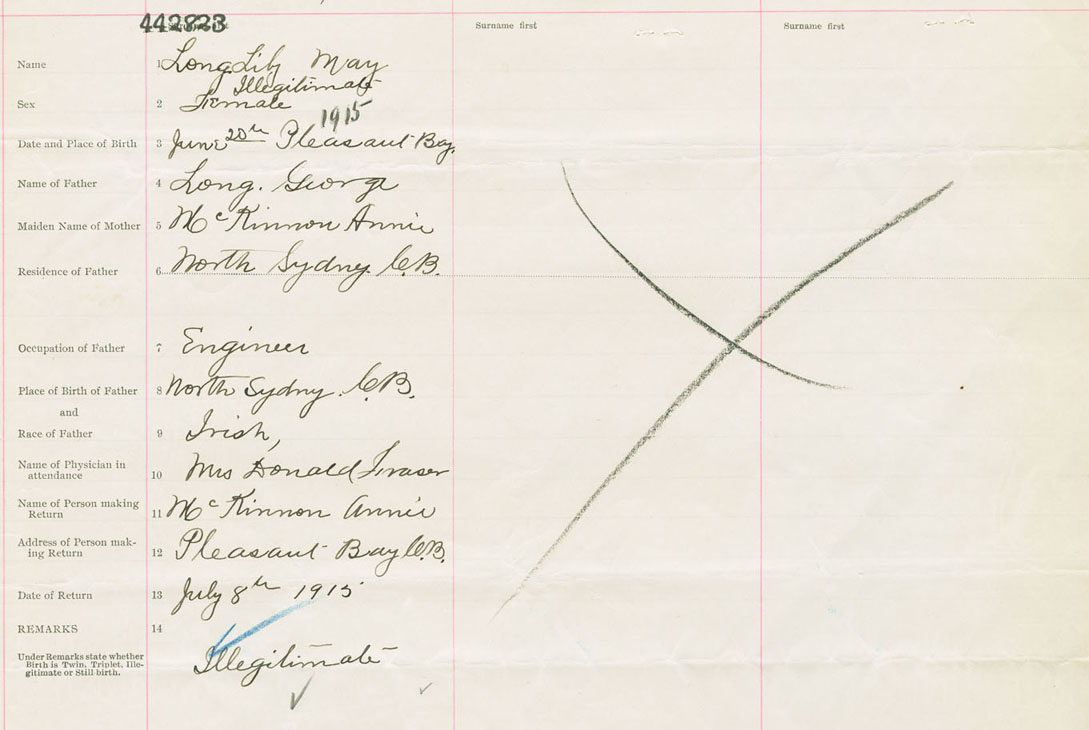 442823
Surname first
Surname first
Name 1 Long Lily May
Illegitimate
Sex 2 Female
1915
Date and Place of Birth 3 June 20th Pleasant Bay.
Name of Father 4 Long. George
Maiden Name of Mother 5 McKinnon Annie
Residence of Father 6 North Sydney. C.B.
Occupation of Father 7 Engineer
Place of Birth of Father 8 North Sydny. C.B.
and
Race of Father 9 Irish,
Name of Physician in
attendance 10 Mrs Donald Fraser
Name of Person making
Return 11 McKinnon Annie
Address of Person mak-
ing Return 12 Pleasant Bay C.B.
Date of Return 13 July 8th 1915
REMARKS 14
Under Remarks state whether
Birth is Twin, Triplet, Ille-
gitimate or Still birth.
Illegitimate